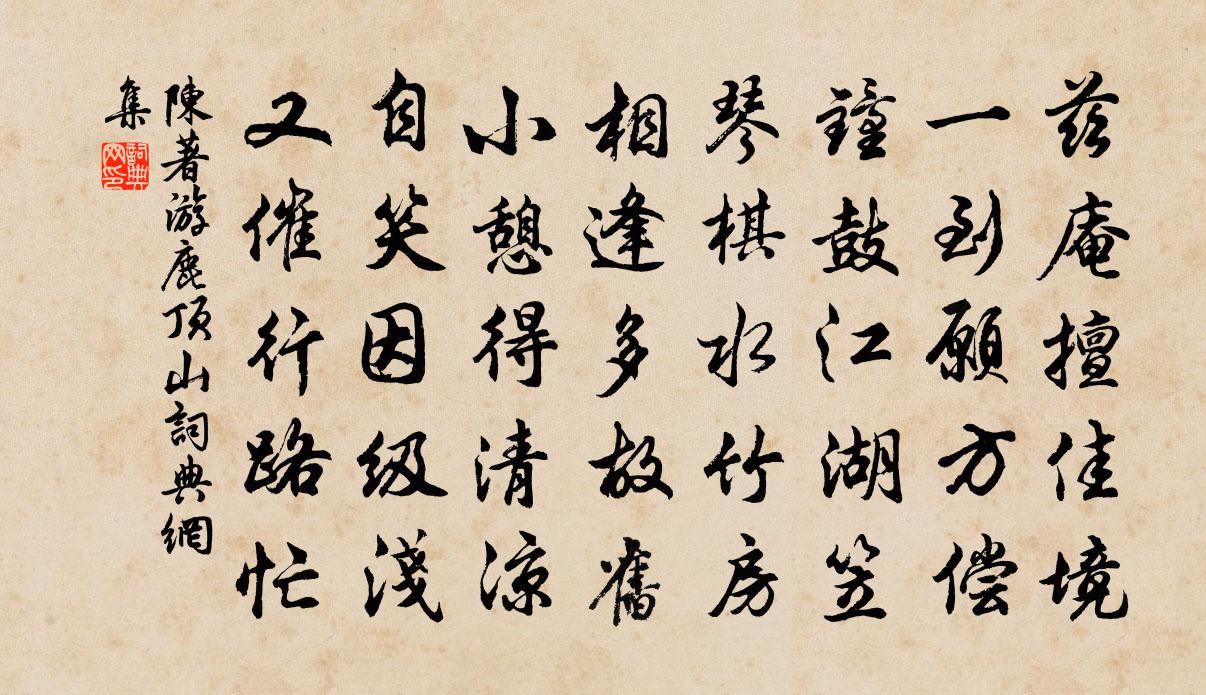 茲庵擅佳境
一到願方偿
鐘鼓江湖笠
琴棋水竹房
相逢多故舊
小憩得清涼
自笑因级淺
又催行路忙
陳著游鹿頂山詞典網
集
詞典網印